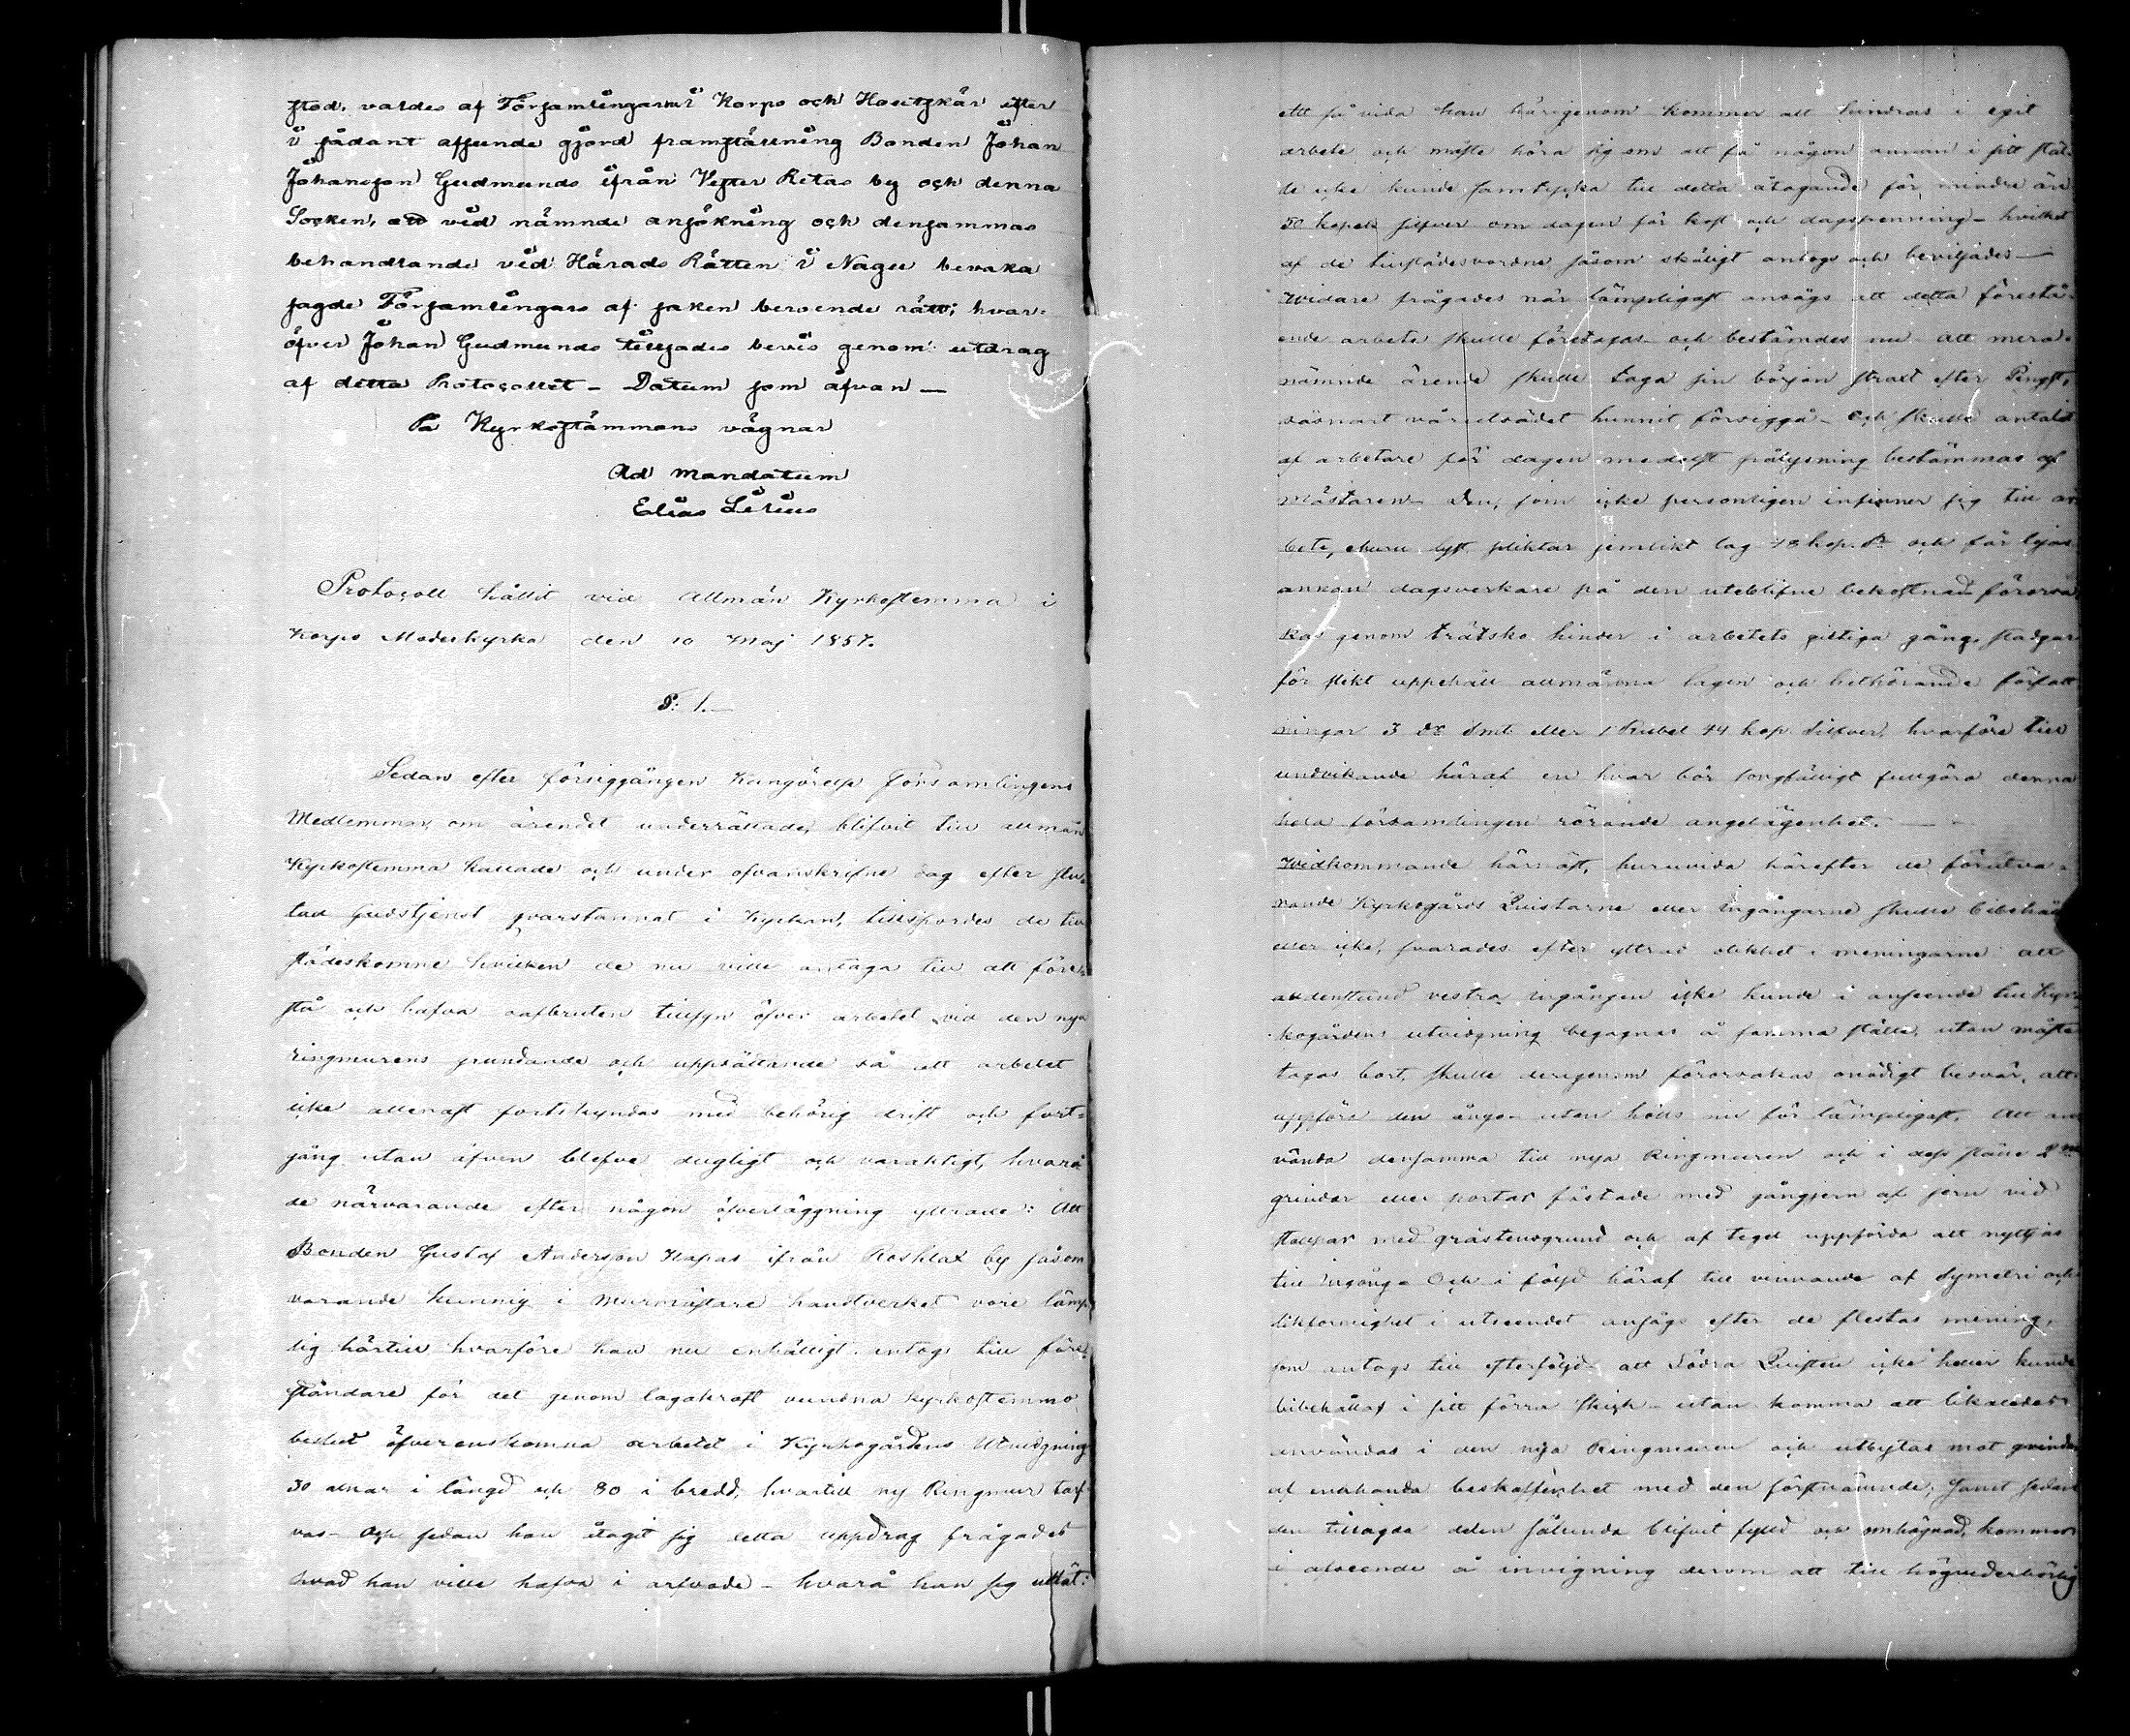 stod, valdes af Församlingarne i Korpo och Houtskär efter
i sådant afseende gjord framställning Bonden Johan
Johansson Gudmunds ifrån Vester Retas by och denna
Socken, att vid nämnde ansökning och densammas
behandlande vid Härads Rätten i Nagu bevaka
sagde Församlingars af saken beroende rätt; hvar-
öfver Johan Gudmunds tilljades bevis genom utdrag
af detta Protocollet – Datum som ofvan –
På Kyrkostämmans vägnar
Ad mandatum
Elias Sirius
Protocoll hållit vid Allmän Kyrkostemma i
Korpo Moderkyrka den 10 Maj 1857.
§: 1.
Sedan efter försiggången Kungörelse Församlingens
Medlemmar, om ärendet underrättade, blifvit till allmän
Kyrkostemma kallade och under ofvanskrifne dag efter slu-
tad Gudstjenst qvarstannat i Kyrkan, tillspordes de till
städeskomne hvilken de nu ville antaga till att före-
stå och hafva oafbruten tillsyn öfver arbetet vid den nya
ringmurens grundande och uppsättande så att arbetet
icke allenast fortskyndas med behörig drift och fort-
gång utan äfven blefve dugligt och varaktigt, hvarå
de närvarande efter någon öfverläggning yttrade: Att
Bonden Gustaf Andersson Kapas ifrån Roshlax by såsom
varande kunnig i murmästare handtverket vore lämp-
lig härtill hvarföre han nu enhälligt antogs till före-
ståndare för det genom lagakraft vundna Kyrkostemmo
beslut öfverenskomna arbetet i Kyrkogårdens Utvidgning
30 alnar i längd och 80 i bredd, hvartill ny Ringmur tarf-
vas – Och sedan han åtagit sig detta uppdrag frågades
hvad han ville hafva i arfvode – hvarå han sig utlät:
Att så vida han härigenom kommer att hindras i egit
arbete och måste höra sig om att få någon annan i sitt stäl-
le icke kunde samtycka till detta åtagande för mindre än
50 kopek silfver om dagen för kost och dagspenning – hvilket
af de tillstädesvordne såsom skäligt antogs och beviljades –
Widare frågades när lämpligast ansågs att detta förestå-
ende arbete skulle företagas och bestämdes nu att mera-
nämnde ärende skulle taga sin början straxt efter Pingst,
såsnart vårutsädet hunnit försiggå – Och skulle antalet
af arbetare för dagen medelst pålysning bestämmas af
mästaren – Den, som icke personligen infinner sig till ar-
bete, ehuru lyst, pliktar jemlikt lag 48 kop. Sr och får lejas
annan dagsverkare på den uteblifne bekostnad förorsa-
kas genom trätsko hinder i arbetets giltiga gång, stadgar
för slikt uppehåll allmänna lagen och hithörande författ-
ningar 3 dr Smt eller 1 Rubel 44 kop. Silfver, hvarföre till
undvikande häraf en hvar bör sorgfälligt fullgöra denna
hela församlingen rörande angelägenhet. –
Widkommande härnäst, huruvida härefter de förutva-
rande Kyrkogårds Luistarne eller Ingångarne skulle bibehållas
eller icke, svarades efter yttrad olikhet i meningarne att
aldenstund vestra ingången icke kunde i anseende till Kyr-
kogårdens utvidgning begagnas å samma ställe, utan måste
tagas bort, skulle derigenom förorsakas onödigt besvär, att
uppföra den ånyo – utan hölls nu för lämpligast, Att an-
vända densamma till nya Ringmuren och i dess ställe 2ne
grindar eller portar fästade med gångjern af jern vid
stolpar med gråstensgrund och af tegel uppförda att nyttjas
till Ingång – Och i följd häraf till vinnande af Symetri och
likformighet i utseendet ansågs efter de flestas mening,
som antogs till efterföljd att Södra Luisten icke heller kunde
bibehållas i sitt förra skick – utan komma att likaledes
användas i den nya Ringmuren och utbytas mot grindar
af enahanda beskaffenhet med den förstnämnde; Samt sedan
den tillagda delen sålunda blifvit fylld och omhägnad, kommer
i afseende å invigning derom att till högvederbörlig